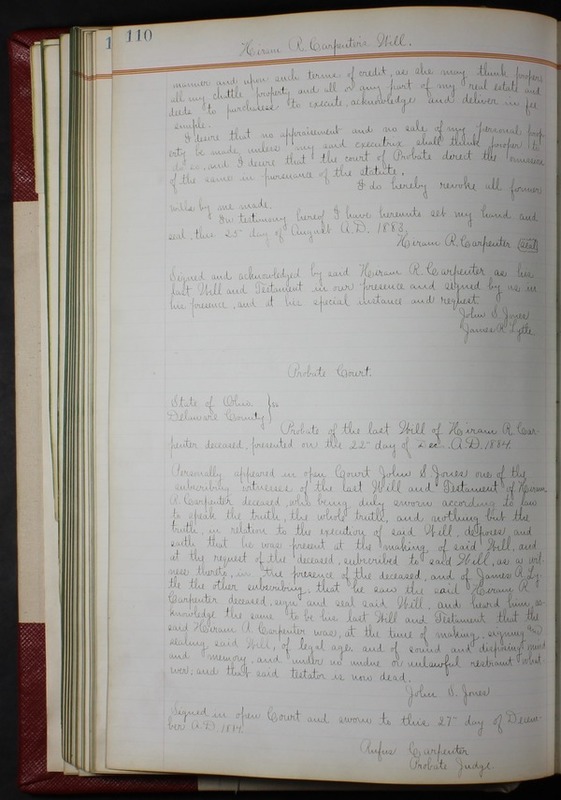 110
Hiram R. Carpenter's Will.
manner and upon such terms of credit, as she may think proper
all my chattle property and all or any part of my real estate and
deeds to purchasers to execute, acknowledge and deliver in fee
simple.
I desire that no appraisement and no sale of my personal prop
erty be made unless my said executrix shall think proper to
do so, and I desire that the court of Probate direct the omission
of the same in pursuance of the statute.
I do hereby revoke all former
wills by me made.
In testimony hereof I have hereunto set my hand and
seal, this 25" day of August A.D. 1883.
Hiram R. Carpenter (seal)
Signed and acknowledged by said Hiram R. Carpenter as his
last Will and Testament in our presence and signed by us in
his presence, and at his special instance and request.
John S. Jones
James R. Lytle.
Probate Court.
State of Ohio. } ss
Delaware County }
Probate of the last Will of Hiram R. Car-
penter deceased, presented on the 22" day of Dec. A.D. 1884.
Personally appeared in open Court John S. Jones one of the
subscribing witnesses of the last Will and Testament of Hiram
R. Carpenter deceased, who being duly sworn according to law
to speak the truth, the whole truth, and nothing but the
truth, in relation to the execution of said Will, deposes and
saith that he was present at the making, of said Will, and
at the request of the deceased, subscribed to said Will, as a wit-
ness thereto, in the presence of the deceased, and of James R. Ly-
tle the other subscribing, that he saw the said Hiram R.
Carpenter deceased, sign and seal said Will, and heard him, ac-
knowledge the same to be his last Will and Testament that the
said Hiram R. Carpenter was, at the time of making, signing and
sealing said Will, of legal age, and of sound and disposing mind
and memory, and under no undue or unlawful restraint what-
ever; and that said testator is now dead.
John S. Jones
Signed in open Court and sworn to this 27" day of Decem-
ber A.D. 1884.
Rufus Carpenter
Probate Judge.